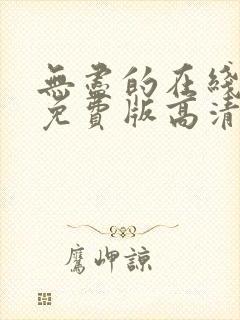 無盡的在綫
免費版高清
鷹岬諒